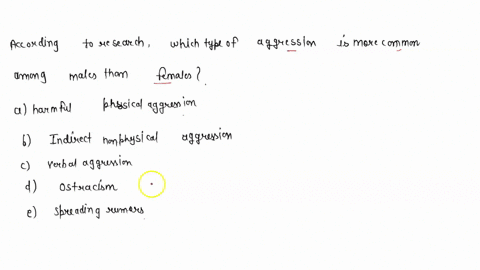 According to research, which type of aggression is more common
among males than females?
a) harmful physical aggression
b) Indirect nonphysical aggression
c) verbal aggression
d) Ostracism
e) Spreading rumars